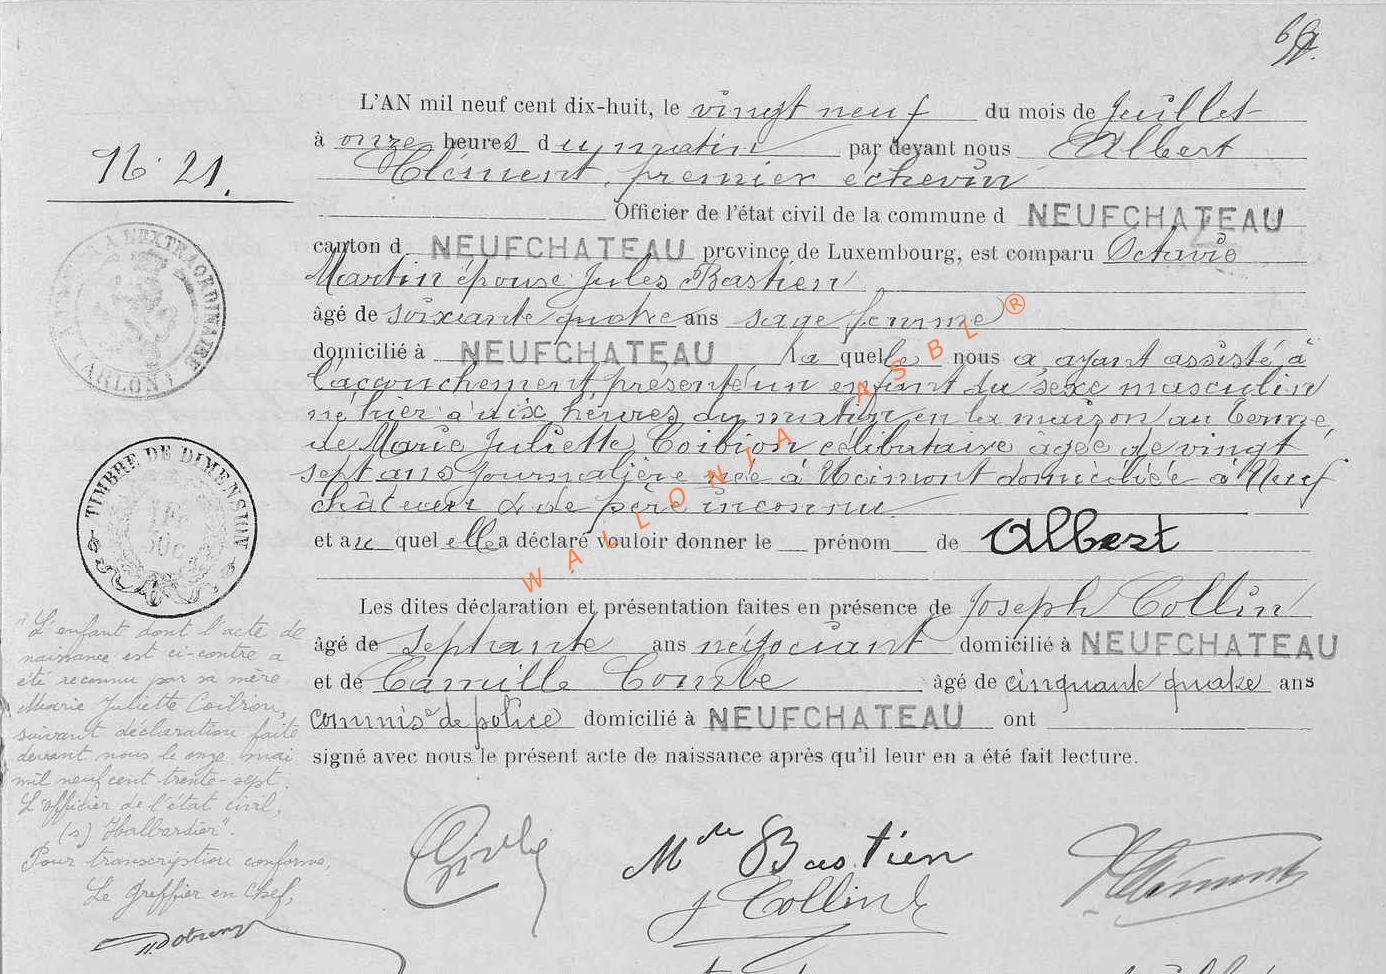 69.
L'AN mil neuf cent dix-huit, le vingt neuf du mois de Juillet
à onze heures du matin par devant nous Albert
Clément, premier échevin
N° 21.
Officier de l'état civil de la commune d NEUFCHATEAU
canton d NEUFCHATEAU province de Luxembourg, est comparu Octavie
Martin épouse Jules Bastien
âgé de soixante quatre ans sage femme
domicilié à NEUFCHATEAU la quelle nous a, ayant assisté à
l'accouchement, présenté un enfant du sexe masculin
né hier à dix heures du matin en la maison au Terme,
de Marie Juliette Coibion célibataire âgée de vingt
sept ans journalière née à Hoimont domiciliée à Neuf
château & de père inconnu
et au quel elle a déclaré vouloir donner le prénom de Albert
Les dites déclaration et présentation faites en présence de Joseph Collin
âgé de septante ans négociant domicilié à NEUFCHATEAU
et de Camille Combe âgé de cinquante quatre ans
commisre de police domicilié à NEUFCHATEAU ont
signé avec nous le présent acte de naissance après qu'il leur en a été fait lecture.
A L'EXTRAORDINAIRE
ARLON
TIMBRE DE DIMENSION
"L'enfant dont l'acte de
naissance est ci-contre a
été reconnu par sa mère
Marie Juliette Coibion,
suivant déclaration faite
devant nous le onze mai
mil neuf cent trente-sept.
L'officier de l'état civil,
(s) Halbardier".
Pour transcription conforme,
Le Greffier en Chef,
Mde Bastien
J Collin
Clément
WALLONIA ASBL ®